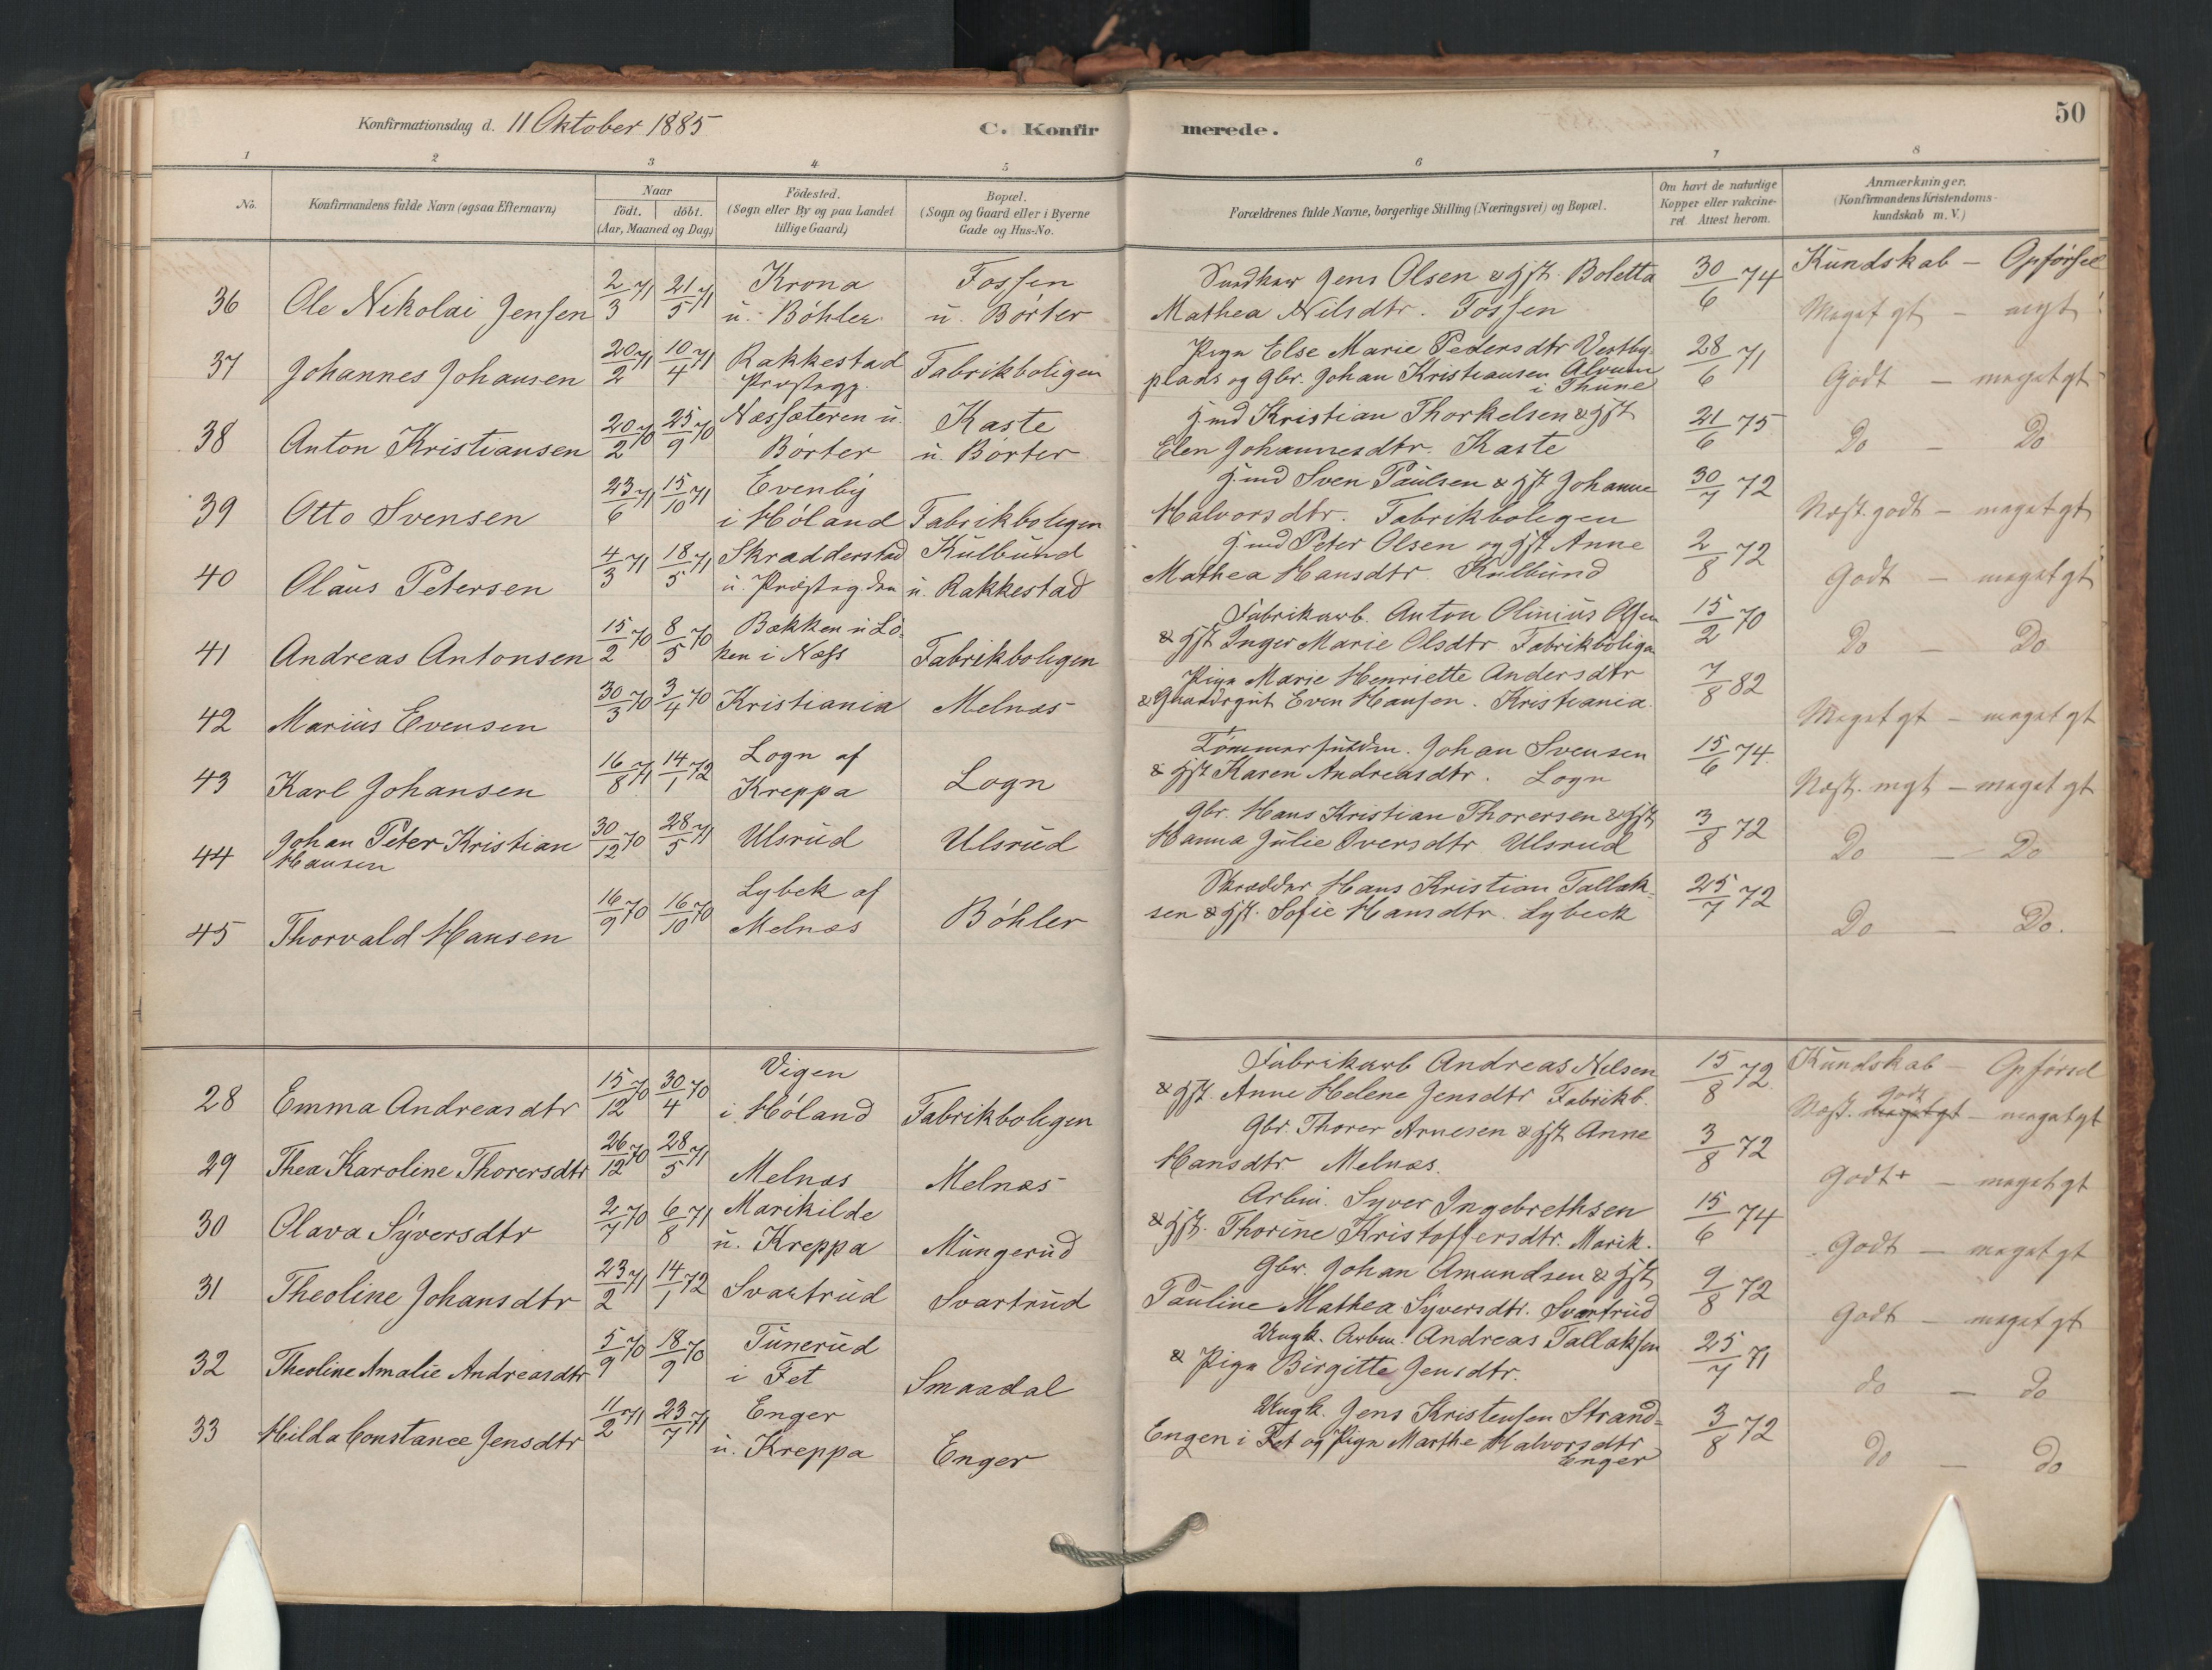 50
Konfirmationsdag d. 11 Oktober 1885
C. Konfir merede.
1 2 3 4 5 6 7 8
No.
Konfirmandens fulde Navn (ogsaa Efternavn)
Naar
födt. döbt.
(Aar, Maaned og Dag)
Födested.
(Sogn eller By og paa Landet
tillige Gaard)
Bopæl.
(Sogn og Gaard eller i Byerne
Gade og Hus-No.
Forældrenes fulde Navne, borgerlige Stilling (Næringsvei) og Bopæl.
Om havt de naturlige
Kopper eller vakcine-
ret Attest herom.
Anmærkninger.
(Konfirmandens Kristendoms-
kundskab m. V.)
Kundskab - Opførsel
36 Ole Nikolai Jensen 2/3 71 21/5 71 Krona
u. Böhler
Fossen
u. Börter
Jens Olsen & Hst. Boletta
Mathea Nilsdtr. Fossen
30/6 74
Meget gt - mgt
37 Johannes Johansen 20/2 71 10/4 71 Rakkestad
Præstegg
Fabrikboligen
Pige Else Marie Pedersdtr Vestby
plads og Gbr. Johan Kristiansen
i Thune
28/6 71
Godt - meget gt
38 Anton Kristiansen 20/2 70 25/9 70 Næssæteren u.
Börter
Kaste
u. Börter
Hmd Kristian Thorkelsen & Hst
Elen Johannesdtr. Kaste
21/6 75
Do - Do
39 Otto Svensen 23/6 71 15/10 71 Evenby
i Höland
Fabrikboligen
Hmd Sven Paulsen & Hst Johanne
Halvorsdtr. Fabrikboligen
30/7 72
Næst. godt - meget gt
40 Olaus Petersen 4/3 71 18/5 71 Skrædderstad
u. Præsteg.den
Kulbund
u. Rakkestad
Hmd Peter Olsen og Hst Anne
Mathea Hansdtr. Kulbund
2/8 72
Godt - meget gt
41 Andreas Antonsen 15/2 70 8/5 70 Bækken u Lö-
ken i Næss
Fabrikboligen
Fabrikarb. Anton Olinius Olsen
& Hst Inger Marie Olsdtr Fabrikbolige
15/2 70
Do - Do
42 Marius Evensen 30/3 70 3/4 70 Kristiania Melnæs
Pige Marie Henriette Andersdtr
& Gaardsgut Even Hansen. Kristiania.
7/8 82
Meget gt - meget gt
43 Karl Johansen 16/8 71 14/1 72 Logn af
Kreppa
Logn
Johan Svensen
& Hst Karen Andreasdtr. Logn
15/6 74.
Næst. mgt - meget gt
44 Johan Peter Kristian
Hansen
30/12 70 28/5 71 Ulsrud Ulsrud
Gbr. Hans Kristian Thorersen & Hst
Hanna Julie Iversdtr Ulsrud
3/8 72
Do - Do
45 Thorvald Hansen 16/9 70 16/10 70 Lybek af
Melnæs
Böhler
Skrædder Hans Kristian Tallak-
sen & Hst. Sofie Hansdtr. Lybeck
25/7 72
Do - Do.
Kundskab - Opførsel
28 Emma Andreasdtr 15/12 70 30/4 70 Vigen
i Höland
Fabrikboligen
Fabrikarb Andreas Nilsen
& Hst. Anne Helene Jensdtr Fabrikb.
15/8 72.
godt
Næst. meget gt - meget gt
29 Thea Karoline Thorersdtr 26/12 70 28/5 71 Melnæs Melnæs
Gbr. Thorer Arnesen & Hst Anne
Hansdtr Melnæs.
3/8 72
Godt+ - meget gt
30 Olava Syversdtr 2/7 70 6/8 71 Marikilde
u. Kreppa
Mungerud
Arbm. Syver Ingebrethsen
& Hst. Thorine Kristoffersdtr. Marik.
15/6 74
Godt - meget gt
31 Theoline Johansdtr 23/2 71 14/1 72 Svartrud Svartrud
Gbr. Johan Amundsen & Hst
Pauline Mathea Syversdtr. Svartrud
9/8 72
Godt - meget gt
32 Theoline Amalie Andreasdtr 5/9 70 18/9 70 Tunerud
i Fet
Smaadal
Ungk. Arbm. Andreas Tallaksen
& Pige Birgitte Jensdtr.
25/7 71
do - do
33 Hilda Constance Jensdtr 11/2 71 23/7 71 Enger
u. Kreppa
Enger
Ungk. Jens Kristensen Strand-
Engen i Fet og Pige Marthe Halvorsdtr
Enger
3/8 72
do - do